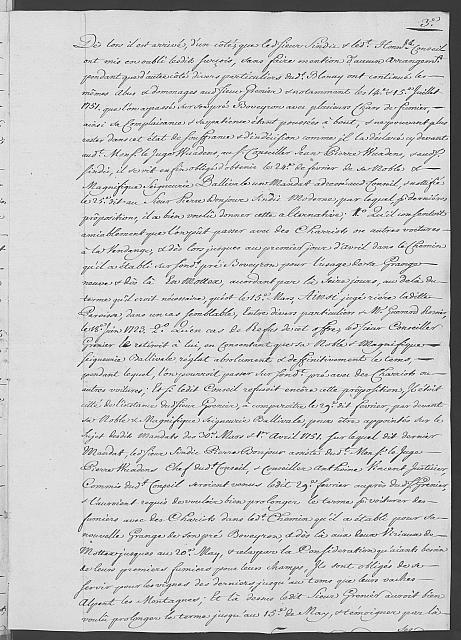 3.°
Dès lors il est arrivés, d'un côté, que led.t Sieur Sindic & led.t Honor.ble Conseil
ont mis en oublÿ lesdits sursois, sans faire mention d'aucun Arrangem.t
pendant que d'autre côté divers particuliers du d.t Blonay ont continués les
mêmes Abus & domages au d.t Sieur Grenier & notamment les 14.e & 15.e Juillet
1751. que l'on a passé sur son pré à Boveyron avec plusieurs Chars de fumier,
ainsi sa Complaisance & sa patience étant poussées à bout, & ne pouvant plus
rester dans cet état de souffrance & d'indécision comme il l'a déclaré cy devant
aud.t Mons.r le Juge Wuadens, au S.r Conseiller Jean Pierre Wuadens, & aud.t
Sindic, il s'est vû enfin obligé d'obtenir le 24.e de février de Sa Noble &
Magnifique Seigneurie Ballivale un Mandat adressé aud.t Conseil, notifié
le 25.e dit au Sieur Pierre Bonjour Sindic Moderne, par lequel p.r derniere
proposition, il a bien voulu donner cette alternative; 1.° Qu'il consentoit
amiablement que l'on pût passer avec des Charriots ou autres voitures
à la Vendange, & dès lors jusques au premier jour d'Avril dans le Chemin
qu'il a établi sur son d.t pré à Boveyron pour l'usage de sa Grange
neuve & dès là En Mottex, accordant par là Seize jours, au delà du
terme qu'il croit nécessaire, qui est le 15.e Mars, Ainsi jugé rière la dite
Paroisse, dans un cas semblable, Entre divers particuliers & M.r Gremaud Ravin
le 15.e Juin 1723. 2.° Qu'en cas de Refus de cet offre, led.t Sieur Conseiller
Grenier le retiroit à lui, en Consentant que sa Noble & Magnifique
Seigneurie Ballivale réglat absolument & deffinitivement le tems,
pendant lequel, l'on pourroit passer sur son d.t pré avec des Charriots ou
autres voitures; Et si ledit Conseil refusoit encore cette proposition, Il étoit
cité de l'instance dud.t Sieur Grenier, à comparoître le 29.e dit février, par devant
Sa Noble & Magnifique Seigneurie Ballivale, pour être appointés sur le
Sujet desdits Mandats des 30.e Mars & 1.er Avril 1751. sur lequel dit dernier
Mandat, led.t Sieur Sindic Pierre Bonjour assisté de Mons.r le Juge
Pierre Wuadens Chef dud.t Conseil, & Conseiller Anthoine Vincent Justicier
Commis dud.t Conseil seroient venus ledit 29.e février auprès dud.t S.r Grenier
& l'auroient requis de vouloir bien prolonger le terme p.r voiturer des
fumiers avec des Chariots dans led.t Chemin qu'il a établi pour sa
nouvelle Grange de son pré Boveyron & dès là aux deux Viviaux de
Mottex jusques au 20.e May, & cela par la Considération qu'aiants besoin
de leurs premiers fumiers pour leurs champs, Ils sont obligés de se
servir pour les vignes des derniers jusqu'au tems que leurs vaches
Alpent les Montagnes; Et là dessus ledit Sieur Grenier auroit bien
voulu prolonger le terme jusqu'au 15.e de May, & témoigner par là